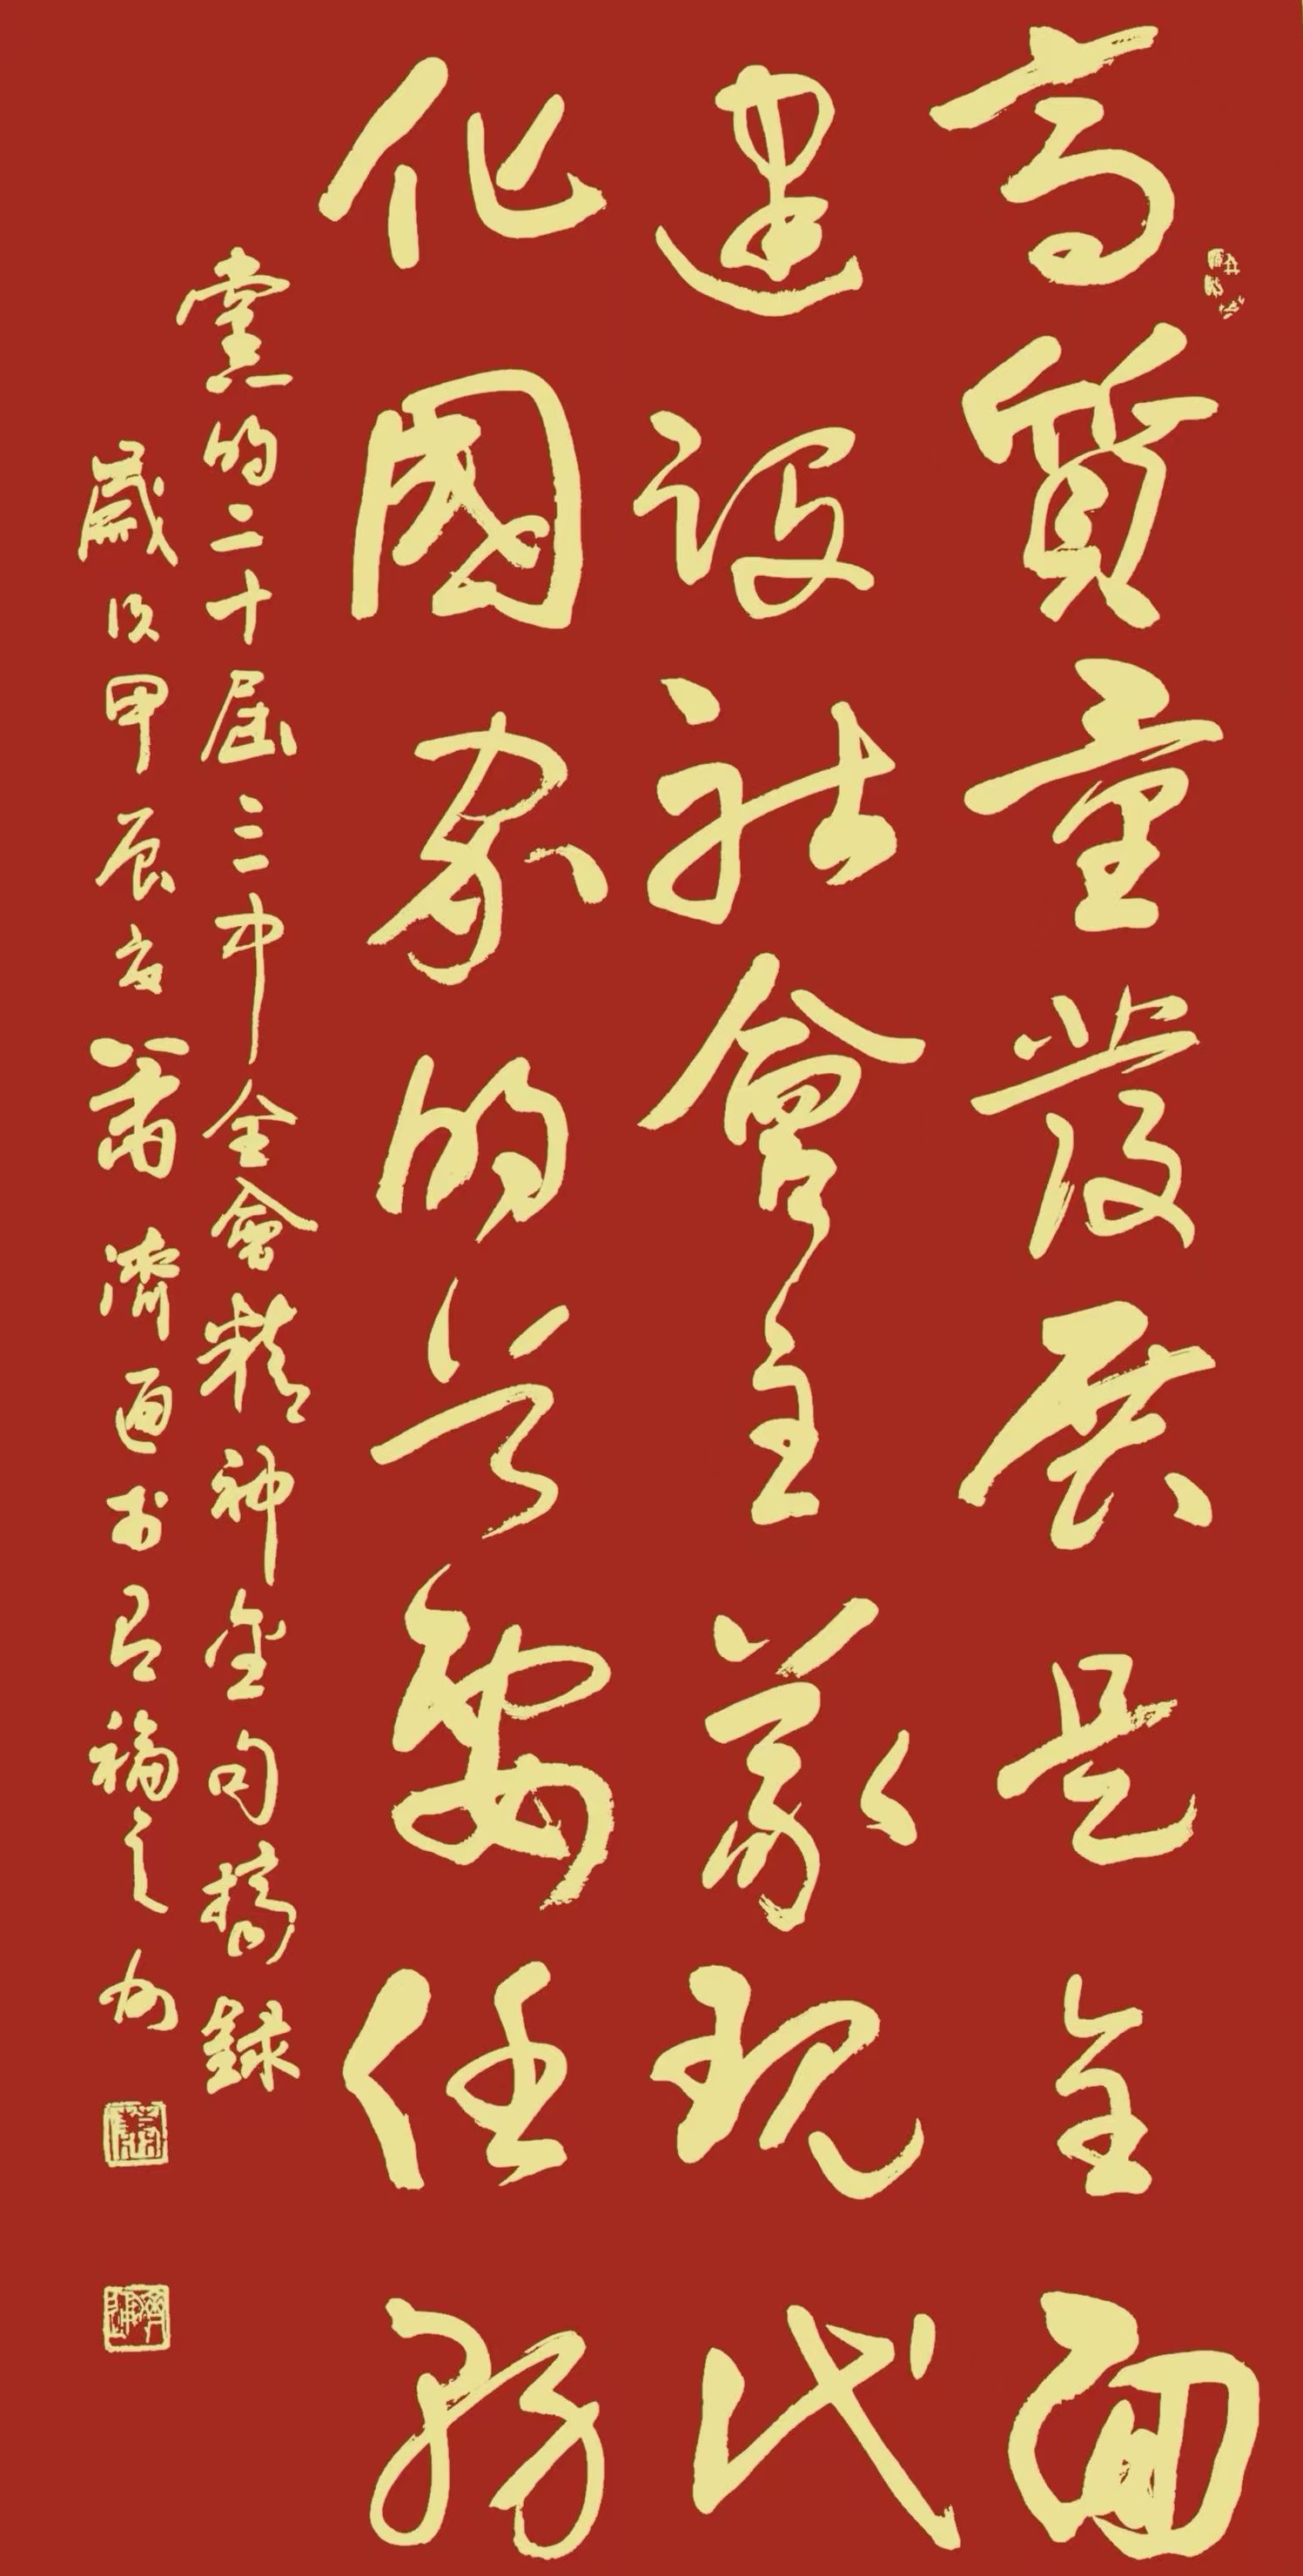 高質量發展是全面
建設社會主義現代
化國家的首要任務
黨的二十屆三中全會精神金句摘録
歲次甲辰夏蕭濟通書